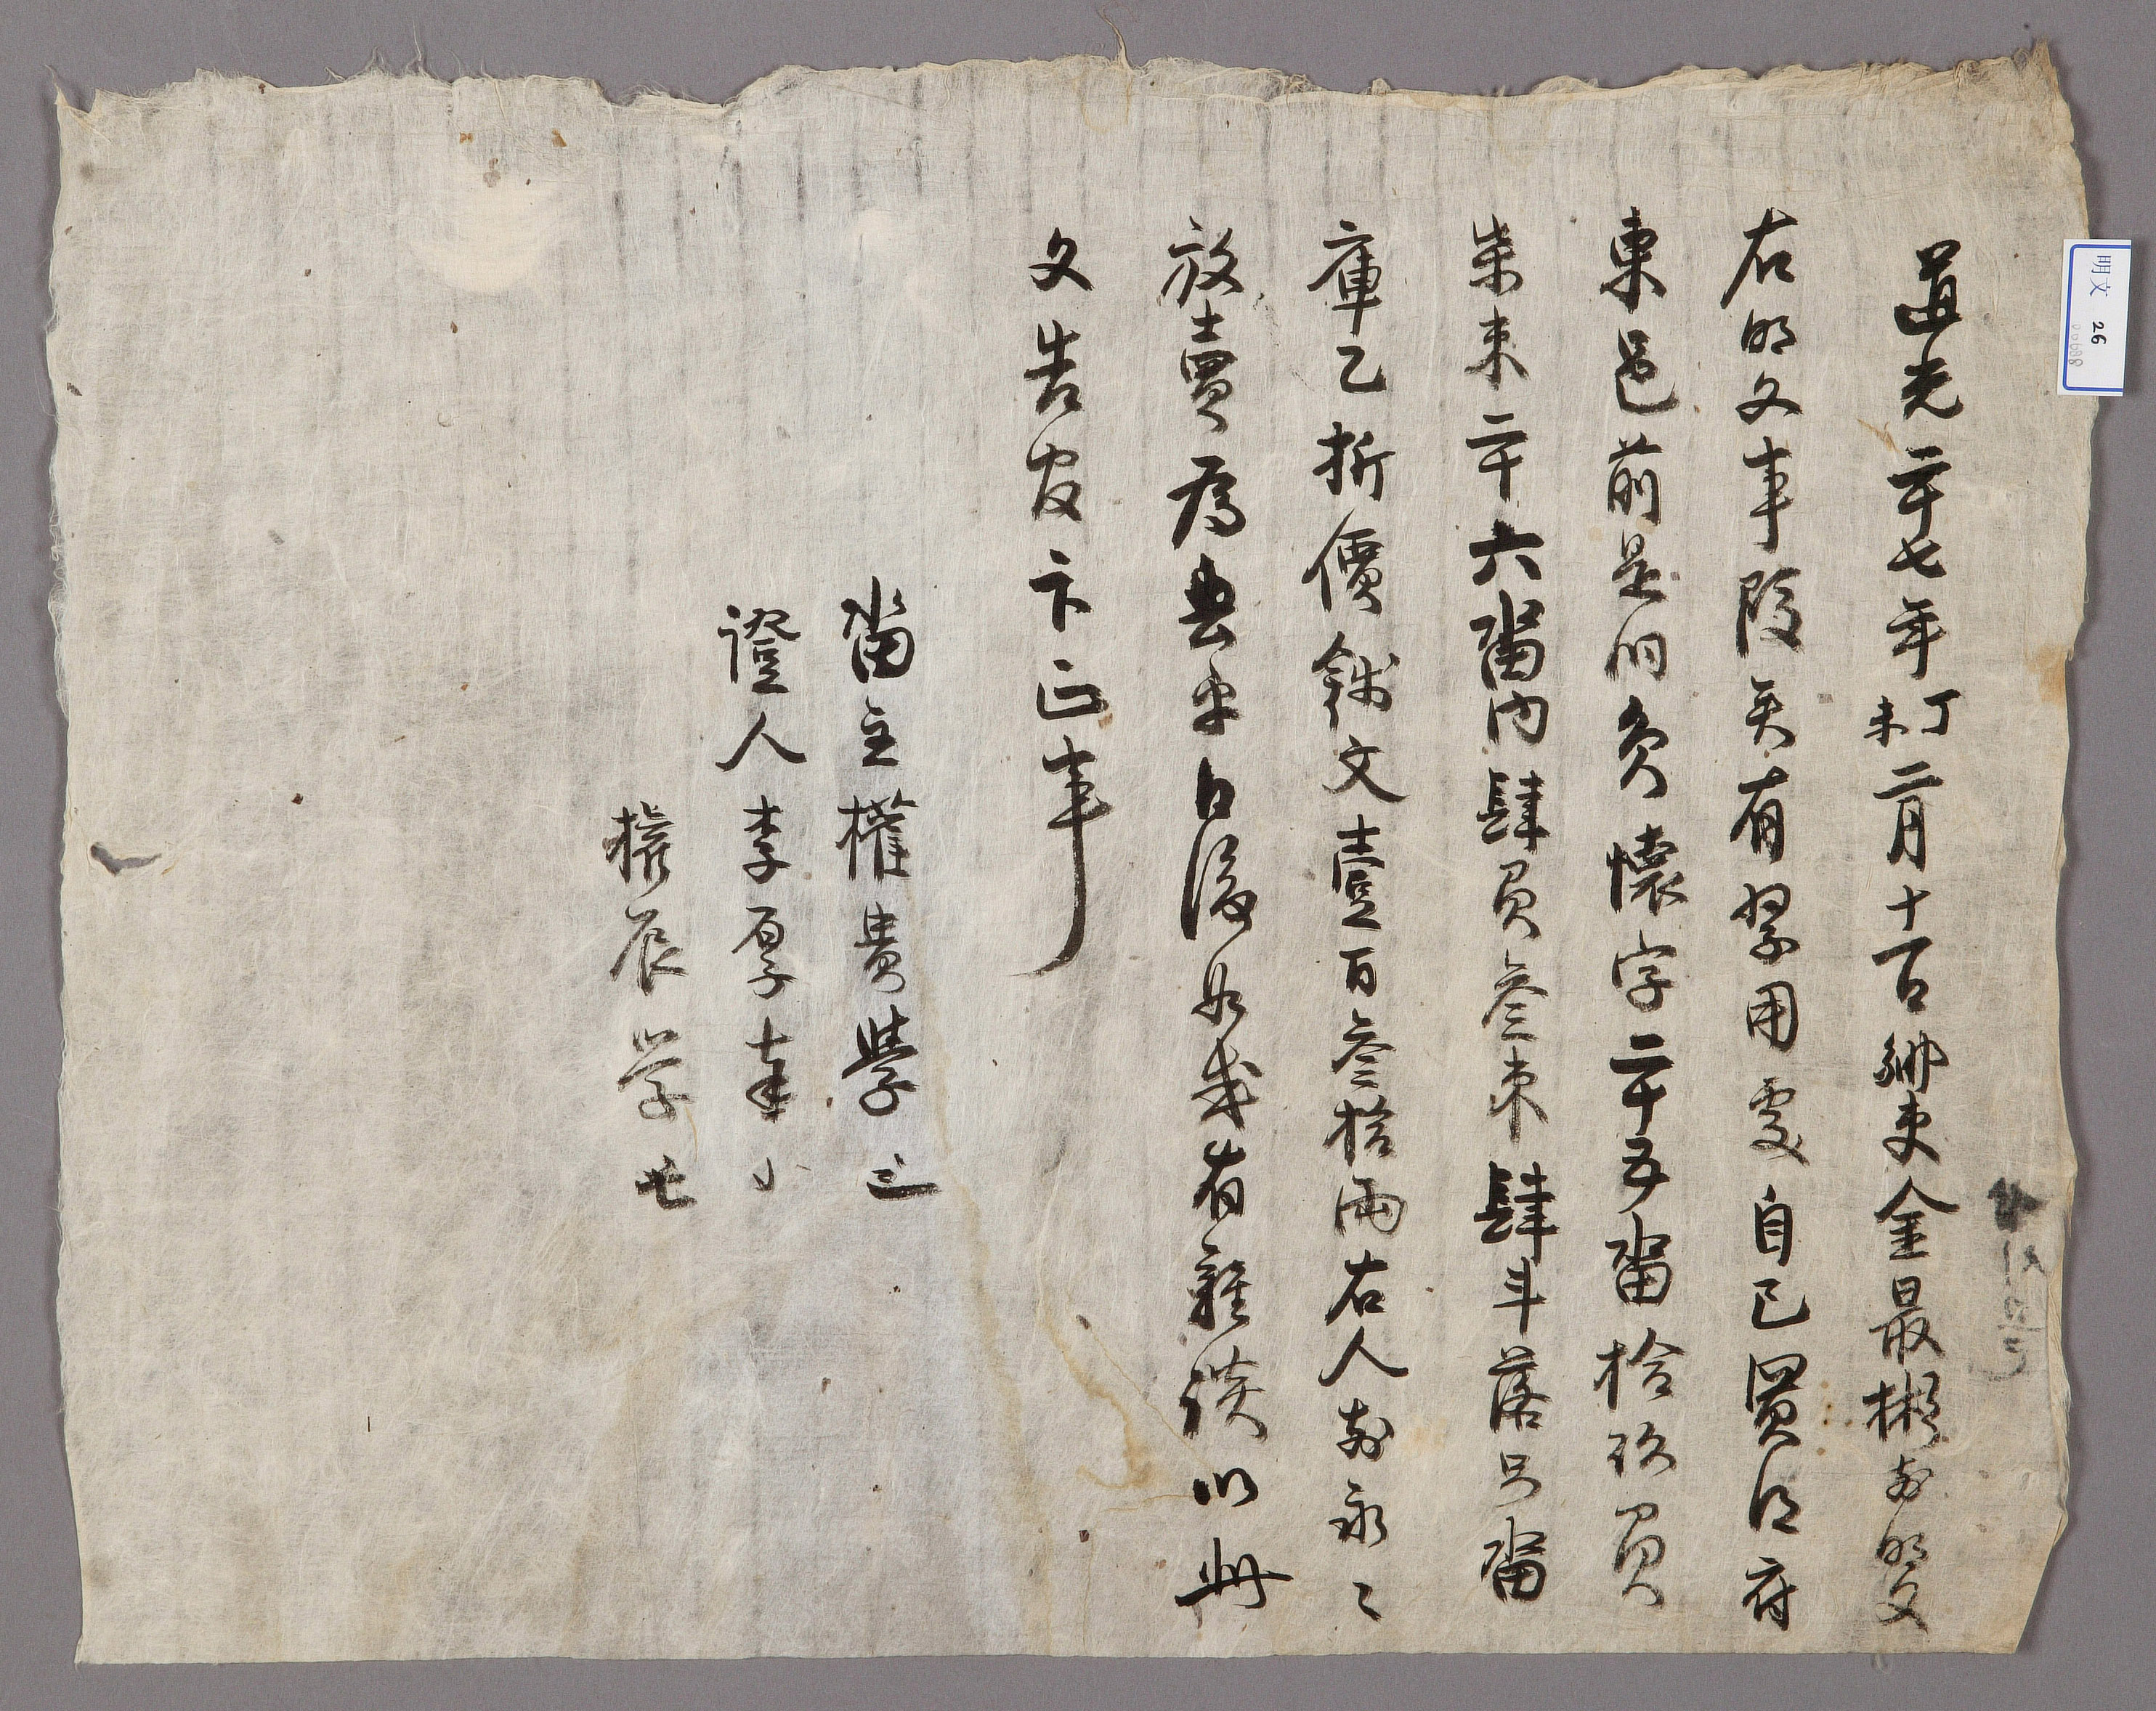 道光二十七年丁未二月十一日鄉吏金最彬前明文
右明文事段矣有緊用處自己買得府
東邑前是在灸懷字二十五畓拾玖負
柒束二十六畓內肆負叄束肆斗落只畓
庫乙折價錢文壹百叄拾兩右人前永〻
放賣爲去乎日後如或有雜談以此
文告官卞正事
畓主權貴學
證人李厚達
權辰学
明文 26